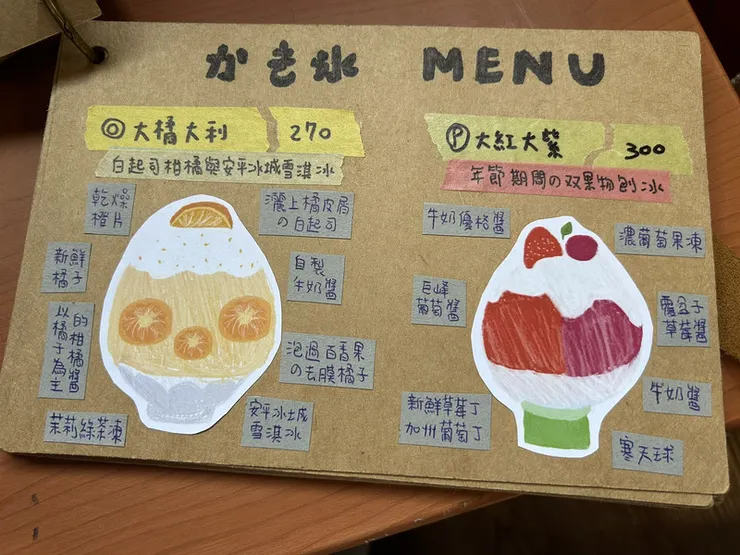 かき氷 MENU
Ⓞ 大橘大利 270
白起司柑橘與安平冰城雪淇冰
乾燥
橙片
灑上橘皮屑
の白起司
新鮮
橘子
自製
牛奶醬
以橘子為主
的柑橘醬
泡過百香果
の去膜橘子
茉莉綠茶凍
安平冰城
雪淇冰
Ⓟ 大紅大紫 300
年節期間の双果物刨冰
牛奶優格醬
濃葡萄果凍
巨峰
葡萄醬
覆盆子
草莓醬
新鮮草莓丁
加州葡萄丁
牛奶醬
寒天球